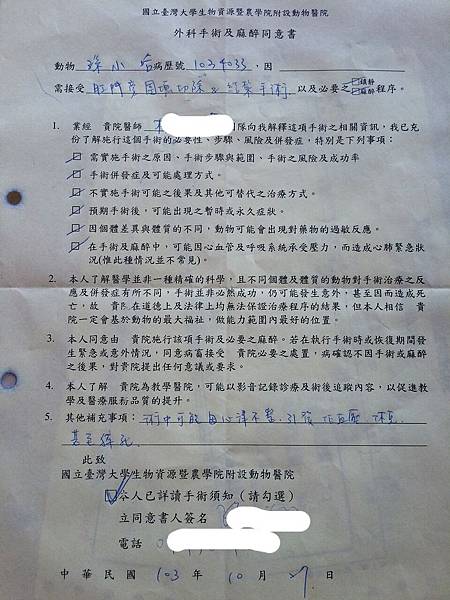 國立臺灣大學生物資源暨農學院附設動物醫院
外科手術及麻醉同意書
動物 小 病歷號 1034033 ,因
需接受 肛門 切除 & 手術 以及必要之 鎮靜 麻醉 程序。
1. 業經 貴院醫師 團隊向我解釋這項手術之相關資訊,我已充
份了解施行這個手術的必要性、步驟、風險及併發症,特別是下列事項:
☑ 需實施手術之原因、手術步驟與範圍、手術之風險及成功率
☑ 手術併發症及可能處理方式。
☑ 不實施手術可能之後果及其他可替代之治療方式。
☑ 預期手術後,可能出現之暫時或永久症狀。
☑ 因個體差異與體質的不同,動物可能會出現對藥物的過敏反應。
☑ 在手術及麻醉中,可能因心血管及呼吸系統承受壓力,而造成心肺緊急狀
況(惟此種情況並不常見)。
2. 本人了解醫學並非一種精確的科學,且不同個體及體質的動物對手術治療之反
應及併發症有所不同,手術並非必然成功,仍可能發生意外,甚至因而造成死
亡,故 貴院在道德上及法律上均無法保證治療程序的結果,但本人相信 貴
院一定會基於動物的最大福祉,做能力範圍內最好的位置。
3. 本人同意由 貴院施行該項手術及必要之麻醉。若在執行手術時或恢復期間發
生緊急或意外情況,同意病畜接受 貴院必要之處置,病確認不因手術或麻醉
之後果,對貴院提出任何意議或要求。
4. 本人了解 貴院為教學醫院,可能以影音記錄診療及術後追蹤內容,以促進教
學及醫療服務品質的提升。
5. 其他補充事項: 術中可能因心律不整,引發低血壓、休克
甚至猝死.
此致
國立臺灣大學生物資源暨農學院附設動物醫院
☑ 令人已詳讀手術須知(請勾選)
立同意書人簽名
電話 0
中華民國 103 年 10 月 27 日